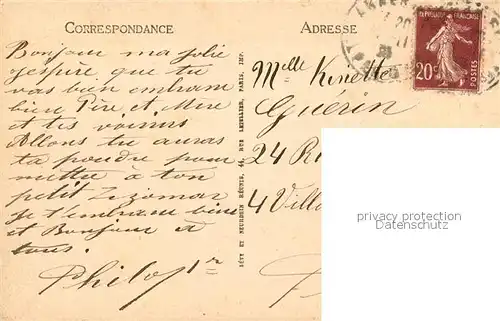 CORRESPONDANCE
Bonjour ma jolie
j'espère que tu
vas bien embrasse
bien Père et Mère
et tes voisins
Allons tu auras
ta poudre pour
mettre à ton
petit
je t'embrasse bien
et Bonjour à
tous.
Philo
LÉVY ET NEURDEIN RÉUNIS, 44, RUE LETELLIER, PARIS, IMP.
ADRESSE
Melle Kinette
Guérin
24 R
4 Villa
RÉPUBLIQUE FRANÇAISE
20c
POSTES
privacy protection
Datenschutz